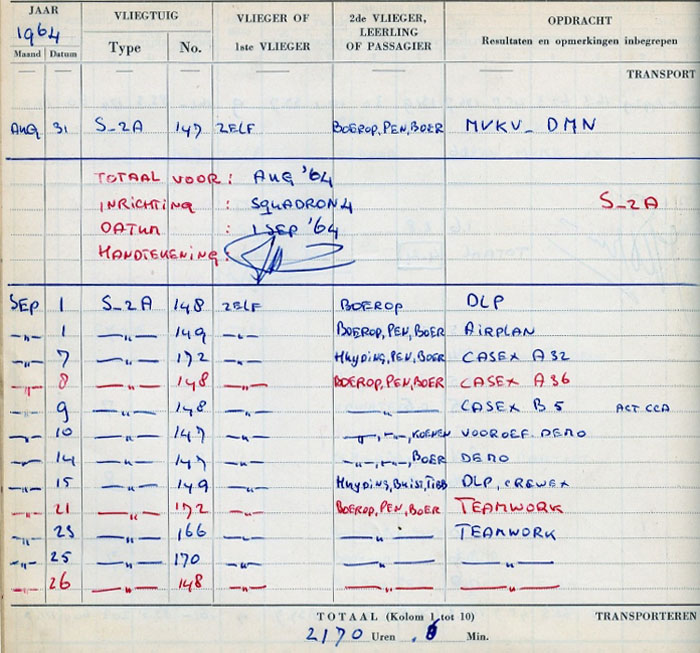 JAAR VLIEGTUIG VLIEGER OF 2de VLIEGER, OPDRACHT
1964 LEERLING
Maand Datum Type No. 1ste VLIEGER OF PASSAGIER Resultaten en opmerkingen inbegrepen
TRANSPORT
AUG 31 S-2A 147 ZELF BOEROP, PEN, BOER MVKV - DMN
TOTAAL VOOR: AUG '64
INRICHTING : SQUADRON 4 S-2A
DATUM : 1 SEP '64
HANDTEKENING:
SEP 1 S-2A 148 ZELF BOEROP DLP
-"- 1 -"- 149 -"- BOEROP, PEN, BOER AIRPLAN
-"- 7 -"- 172 -"- Huyding, PEN, BOER CASEX A32
-"- 8 -"- 148 -"- BOEROP, PEN, BOER CASEX A36
-"- 9 -"- 148 -"- -"- CASEX B5 ACT CCA
-"- 10 -"- 147 -"- -"-, -"-, KOENEN VOOROEF. DEMO
-"- 14 -"- 147 -"- -"-, -"-, BOER DEMO
-"- 15 -"- 149 -"- Huyding, Buist, Tibb DLP, CREWEX
-"- 21 -"- 172 -"- BOEROP, PEN, BOER TEAMWORK
-"- 23 -"- 166 -"- -"- TEAMWORK
-"- 25 -"- 170 -"- -"- -"-
-"- 26 -"- 148 -"- -"- -"-
TOTAAL (Kolom 1 tot 10) TRANSPORTEREN
2170 Uren Min.